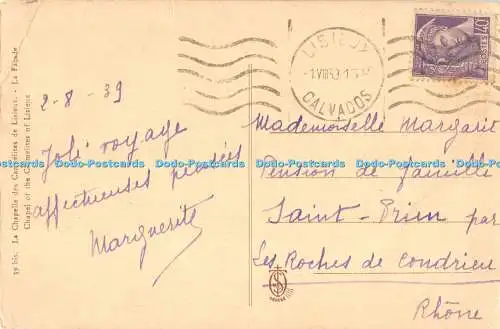 39 bis. La Chapelle des Carmélites de Lisieux. - La Façade
Chapel of the Carmelites of Lisieux
2-8-39
Joli voyage
affectueuses pensées
Marguerite
LISIEUX
CALVADOS
40
POSTES
Mademoiselle Margarit
Pension de famille
Saint-Prim par
Les Roches de Condrieu
Rhône
Dodo-Postcards Dodo-Postcards Dodo-Postcards Dodo-Postcards